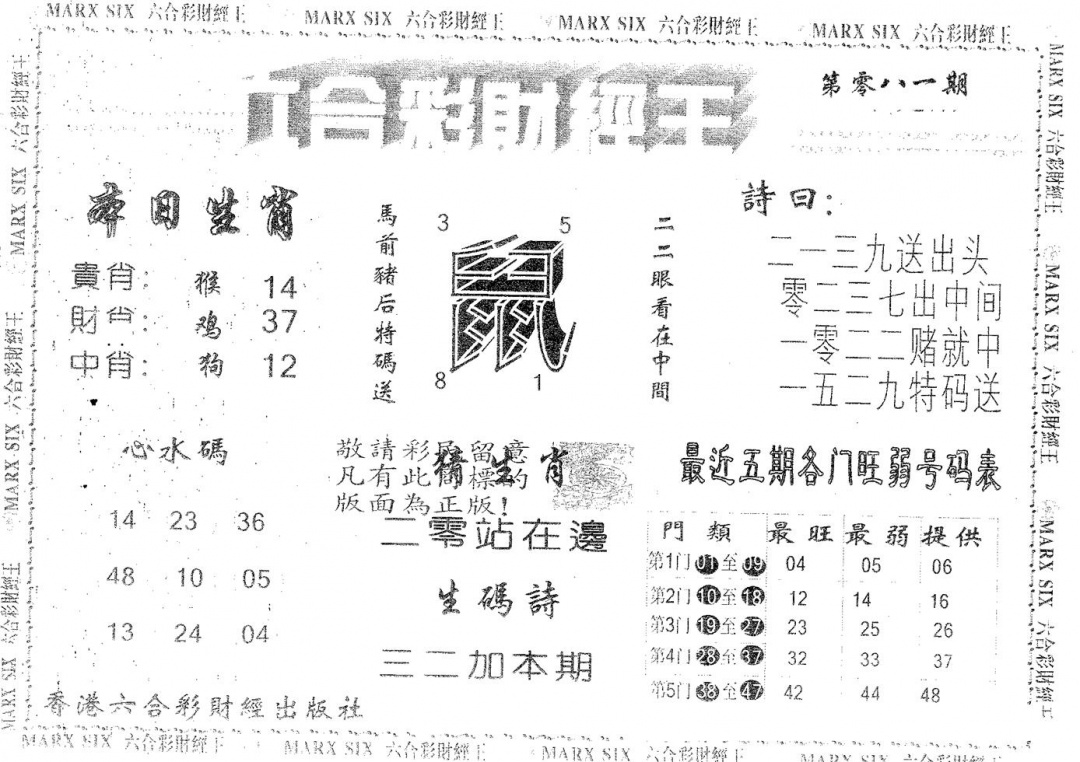 MARX SIX 六合彩財經王 MARX SIX 六合彩財經王 MARX SIX 六合彩財經王 MARX SIX 六合彩財經王
六合彩財經王
第零八一期
本日生肖
貴肖: 猴 14
財肖: 鸡 37
中肖: 狗 12
馬前豬后特碼送
3 5
鼠
8 1
二二眼看在中間
詩曰:
二一三九送出头
零二三七出中间
一零二二赌就中
一五二九特码送
心水碼
14 23 36
48 10 05
13 24 04
敬請彩民留意
凡有此商標的
版面為正版!
猜生肖
二零站在邊
生碼詩
三二加本期
最近五期各门旺弱号码表
門類 最旺 最弱 提供
第1门 01至09 04 05 06
第2门 10至18 12 14 16
第3门 19至27 23 25 26
第4门 28至37 32 33 37
第5门 38至47 42 44 48
香港六合彩財經出版社
MARX SIX 六合彩財經王 MARX SIX 六合彩財經王 MARX SIX 六合彩財經王 MARX SIX 六合彩財經王
MARX SIX 六合彩財經王 MARX SIX 六合彩財經王 MARX SIX 六合彩財經王
MARX SIX 六合彩財經王 MARX SIX 六合彩財經王 MARX SIX 六合彩財經王